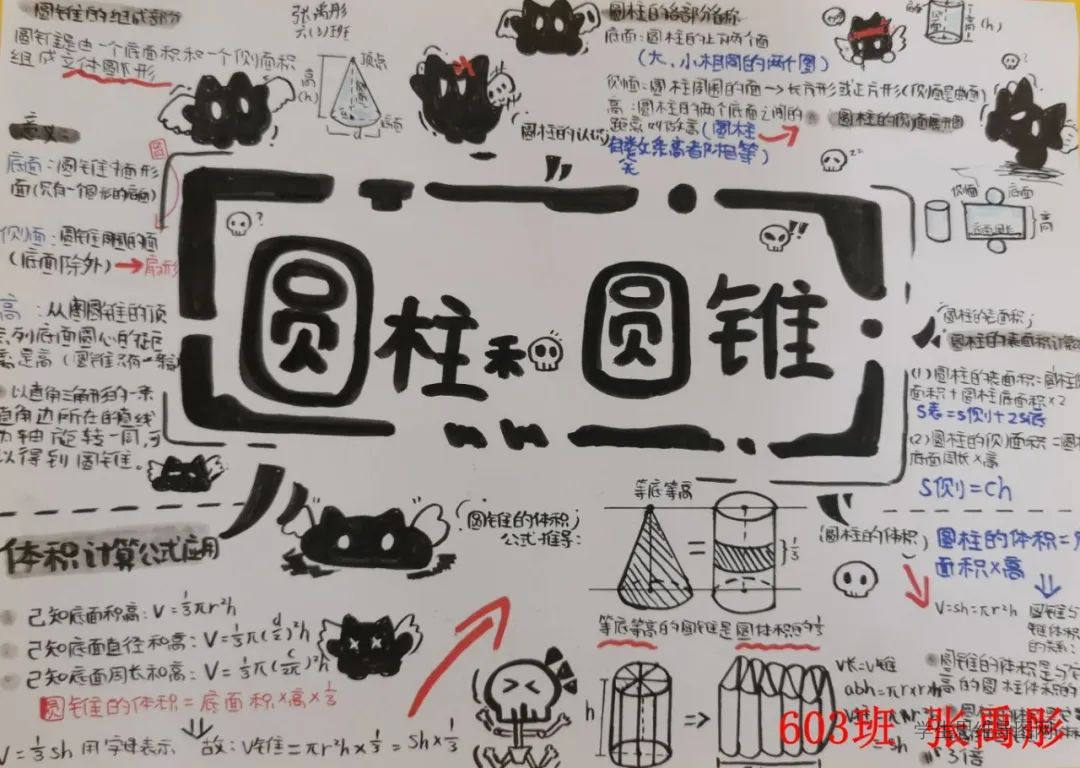 圆锥的组成部分
张禹彤
六(3)班
圆锥是由一个底面积和一个侧面积
组成立体图形
顶点
高
(h)
侧面
底面
意义:
底面:圆锥椭形
面(只有一个圆形的底面)
圆
侧面:圆锥周围的面
(底面除外)→扇形
高:从圆锥的顶
点到底面圆心的距
离是高(圆锥只有一条高)
以直角三角形的一条
直角边所在的直线
为轴旋转一周,可
以得到圆锥。
圆柱的各部分名称
底面:圆柱的上下两个面
(大、小相同的两个圆)
侧面:圆柱周围的面→长方形或正方形(侧面是曲面)
高:圆柱的两个底面之间的
距离叫做高(圆柱
有无数条高都相等)
圆柱的认识
圆柱的侧面展开图
底面
高
(h)
侧面
底面
底面周长
高
圆柱和圆锥
圆柱的表面积;
圆柱的表面积计算
(1)圆柱的表面积=圆柱的
面积+圆柱底面积×2
S表=S侧+2S底
(2)圆柱的侧面积=圆柱
底面周长×高
S侧=Ch
体积计算公式应用
已知底面积高:V=⅓πr²h
已知底面直径和高:V=⅓π(d/2)²h
已知底面周长和高:V=⅓π(c/2π)²h
圆锥的体积=底面积×高×⅓
V=⅓Sh用字母表示
故:V锥=πr²h×⅓=Sh×⅓
(圆锥的体积)
公式推导:
等底等高
=
}⅓
等底等高的圆锥是圆体积的⅓
h
=>
V长=V锥
abh=πr×r×h
=Sh
(圆柱的体积)
圆柱的体积=
面积×高
V=Sh=πr²h
圆锥与
锥体积
的关系:
圆锥的体积是与它
高的圆柱体积的
3倍
603班 张禹彤